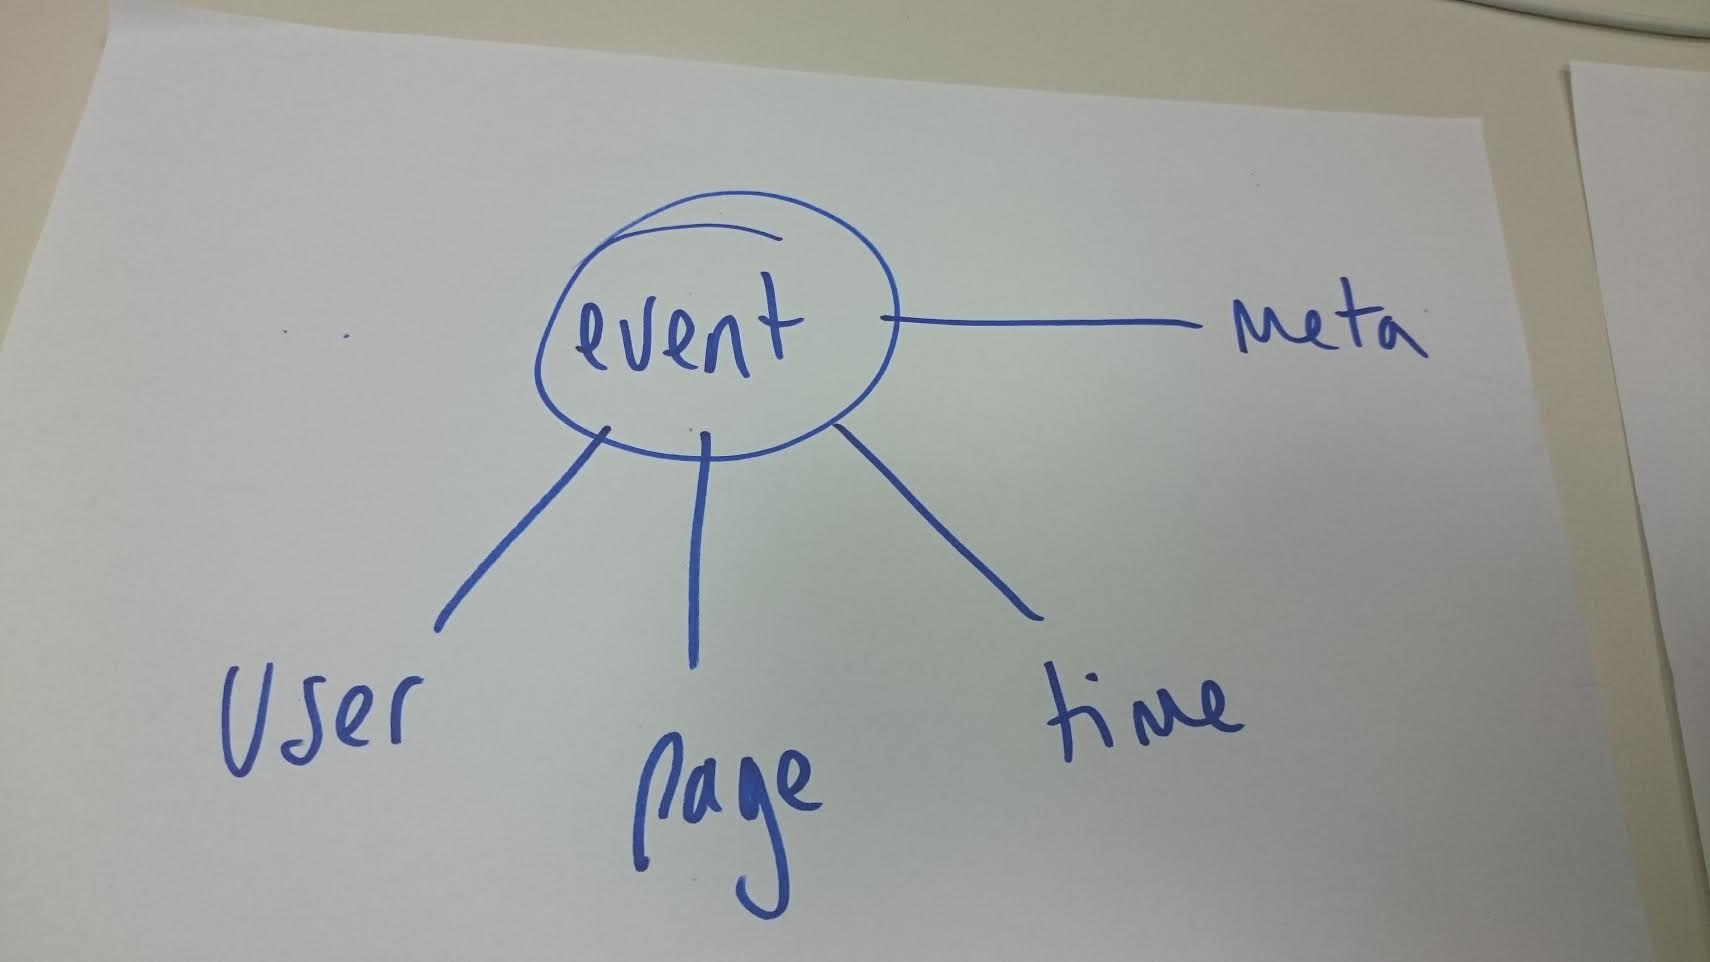 event
Meta
User
page
time